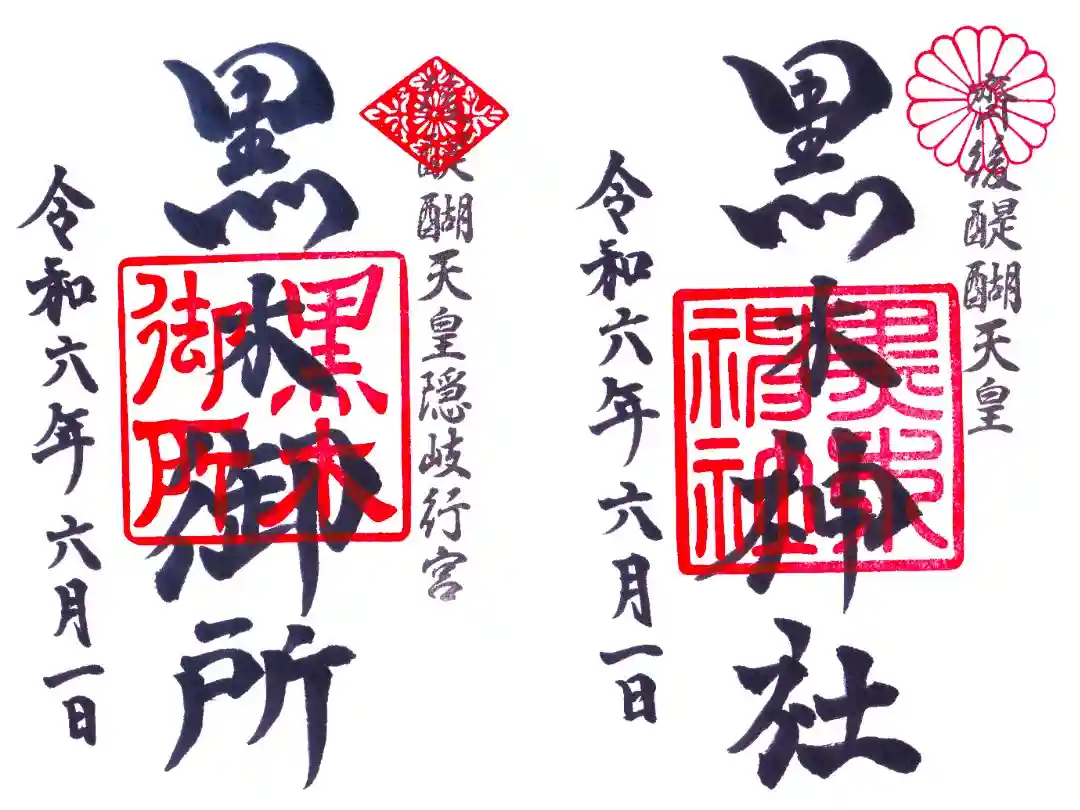 後醍醐天皇隠岐行宮
黒木御所
黒木
御所
令和六年六月一日
齋後醍醐天皇
黒木神社
黒木
神社
令和六年六月一日